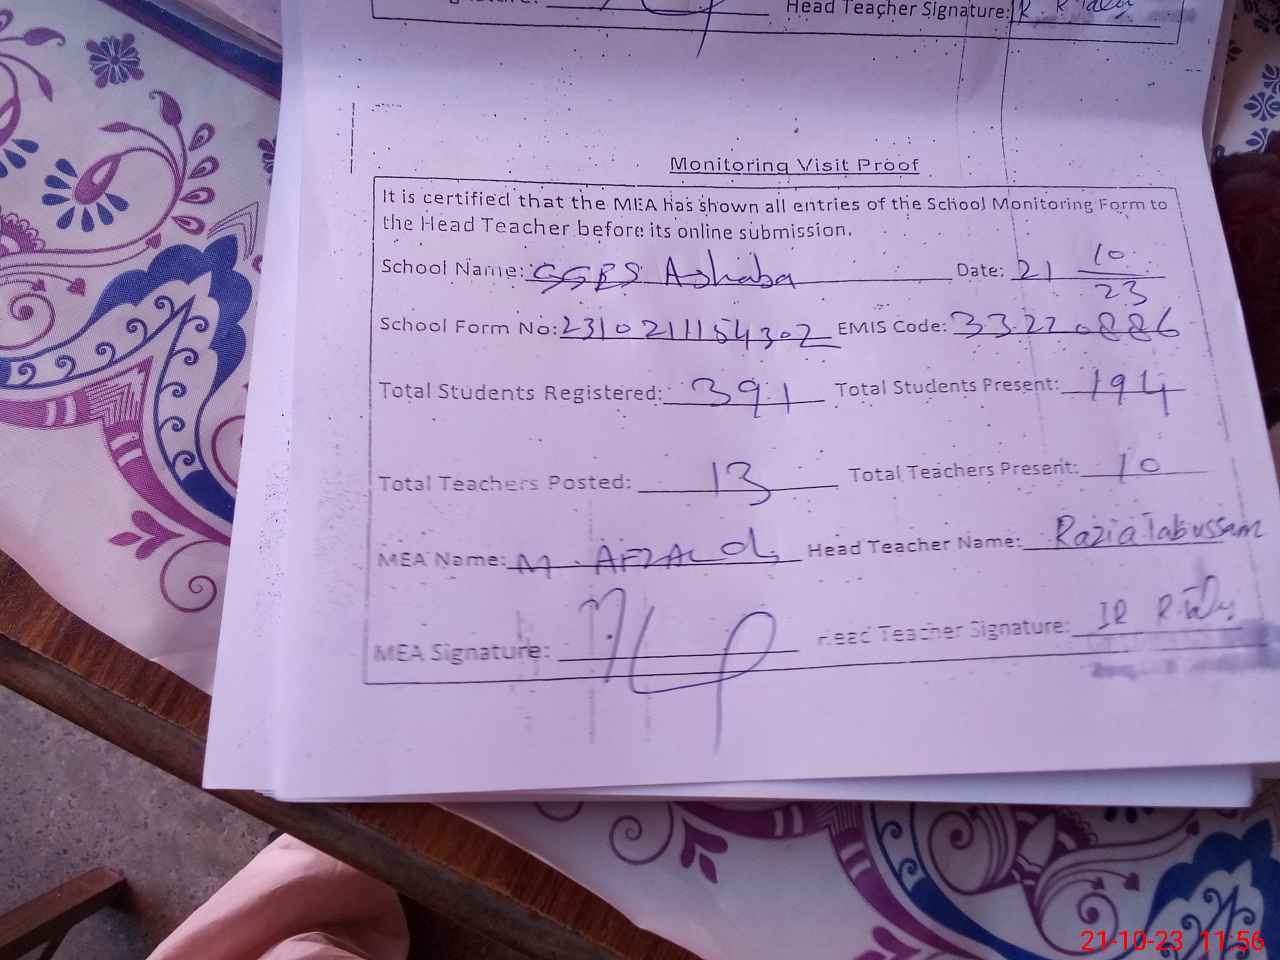 Head Teacher Signature:
Monitoring Visit Proof
It is certified that the MEA has shown all entries of the School Monitoring Form to
the Head Teacher before its online submission.
School Name: GGES Ashaba Date: 21 10/23
School Form No: 2310211154302 EMIS Code: 33220886
Total Students Registered: 391 Total Students Present: 194
Total Teachers Posted: 13 Total Teachers Present: 10
MEA Name: M. AFZAL Head Teacher Name: Razia Tabussam
MEA Signature: Head Teacher Signature:
21-10-23 11:56